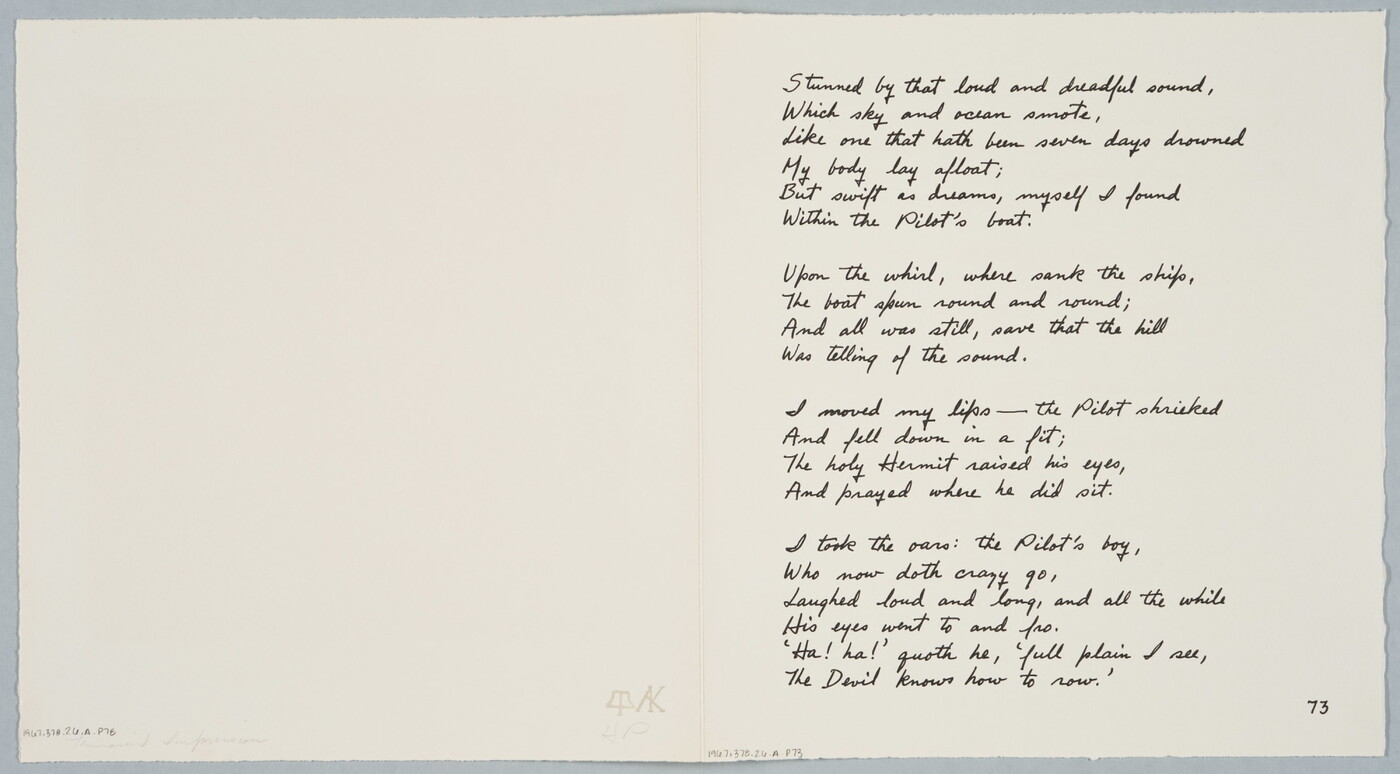 Stunned by that loud and dreadful sound,
Which sky and ocean smote,
Like one that hath been seven days drowned
My body lay afloat;
But swift as dreams, myself I found
Within the Pilot's boat.
Upon the whirl, where sank the ship,
The boat spun round and round;
And all was still, save that the hill
Was telling of the sound.
I moved my lips — the Pilot shrieked
And fell down in a fit;
The holy Hermit raised his eyes,
And prayed where he did sit.
I took the oars: the Pilot's boy,
Who now doth crazy go,
Laughed loud and long, and all the while
His eyes went to and fro.
'Ha! ha!' quoth he, 'full plain I see,
The Devil knows how to row.'
73
1967.378.26.A P73